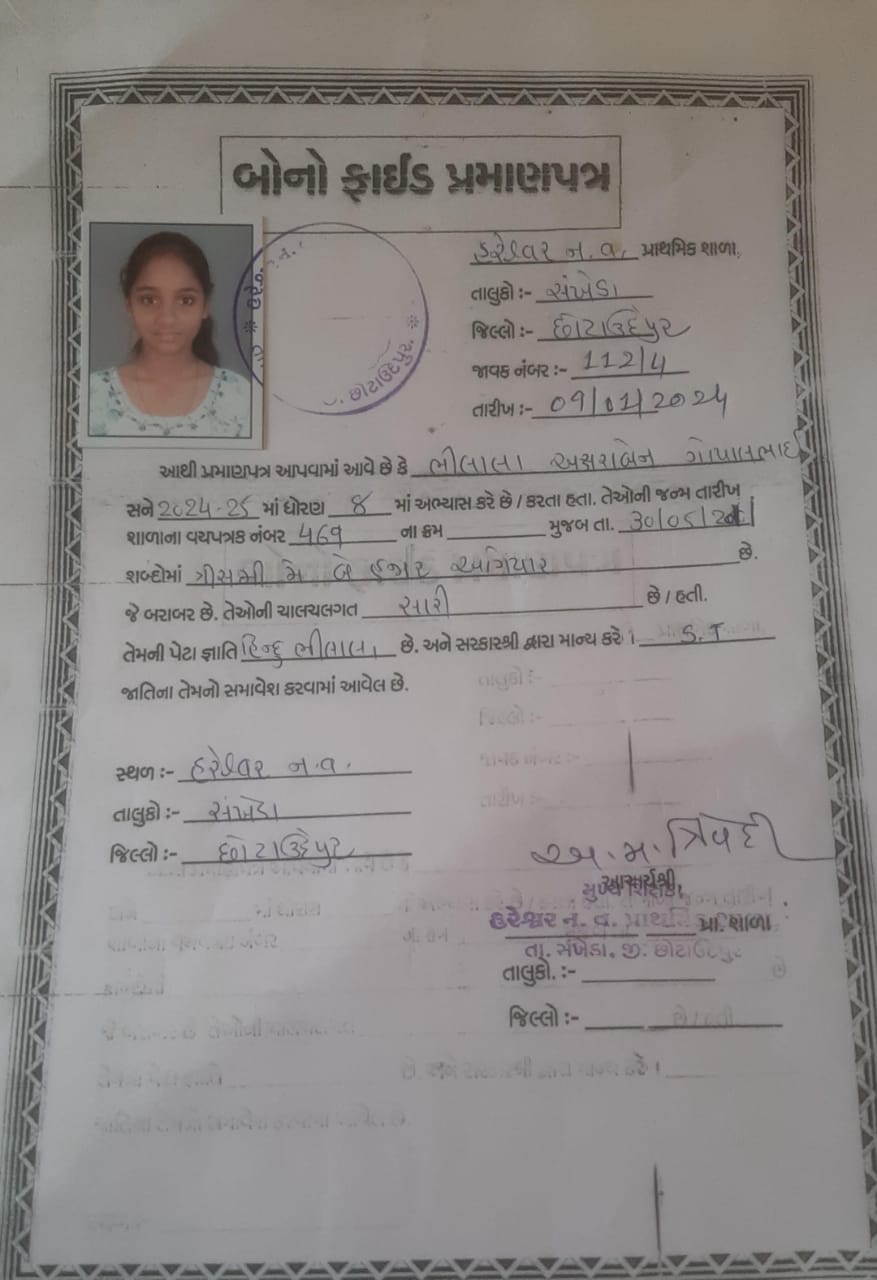 બોનો ફાઈડ પ્રમાણપત્ર
હરેશ્વર ન.વ. પ્રાથમિક શાળા
તાલુકો :- સંખેડા
જિલ્લો :- છોટાઉદેપુર
જાવક નંબર :- 112/4
તારીખ :- 09/01/2024
છોટાઉદેપુર.
આથી પ્રમાણપત્ર આપવામાં આવે છે કે ભીલાલા અક્ષરાબેન ગોપાલભાઈ
સને 2024-25 માં ધોરણ 8 માં અભ્યાસ કરે છે / કરતા હતા. તેઓની જન્મ તારીખ
શાળાના વયપત્રક નંબર 469 ના ક્રમ મુજબ તા. 30/05/
શબ્દોમાં ત્રીસમી મે બે હજાર અગિયાર છે.
જે બરાબર છે. તેઓની ચાલચલગત સારી છે / હતી.
તેમની પેટા જ્ઞાતિ હિન્દુ ભીલાલા છે. અને સરકારશ્રી દ્વારા માન્ય કરે । S.T
જાતિના તેમનો સમાવેશ કરવામાં આવેલ છે.
સ્થળ :- હરેશ્વર ન.વ.
તાલુકો :- સંખેડા
જિલ્લો :- છોટાઉદેપુર
અ.મ.ત્રિવેદી
આચાર્યશ્રી
મુખ્ય શિક્ષક
હરેશ્વર ન. વ. પ્રાથમિ પ્રા. શાળા
તા. સંખેડા, જી. છોટાઉદેપુર
તાલુકો. :-
જિલ્લો :-